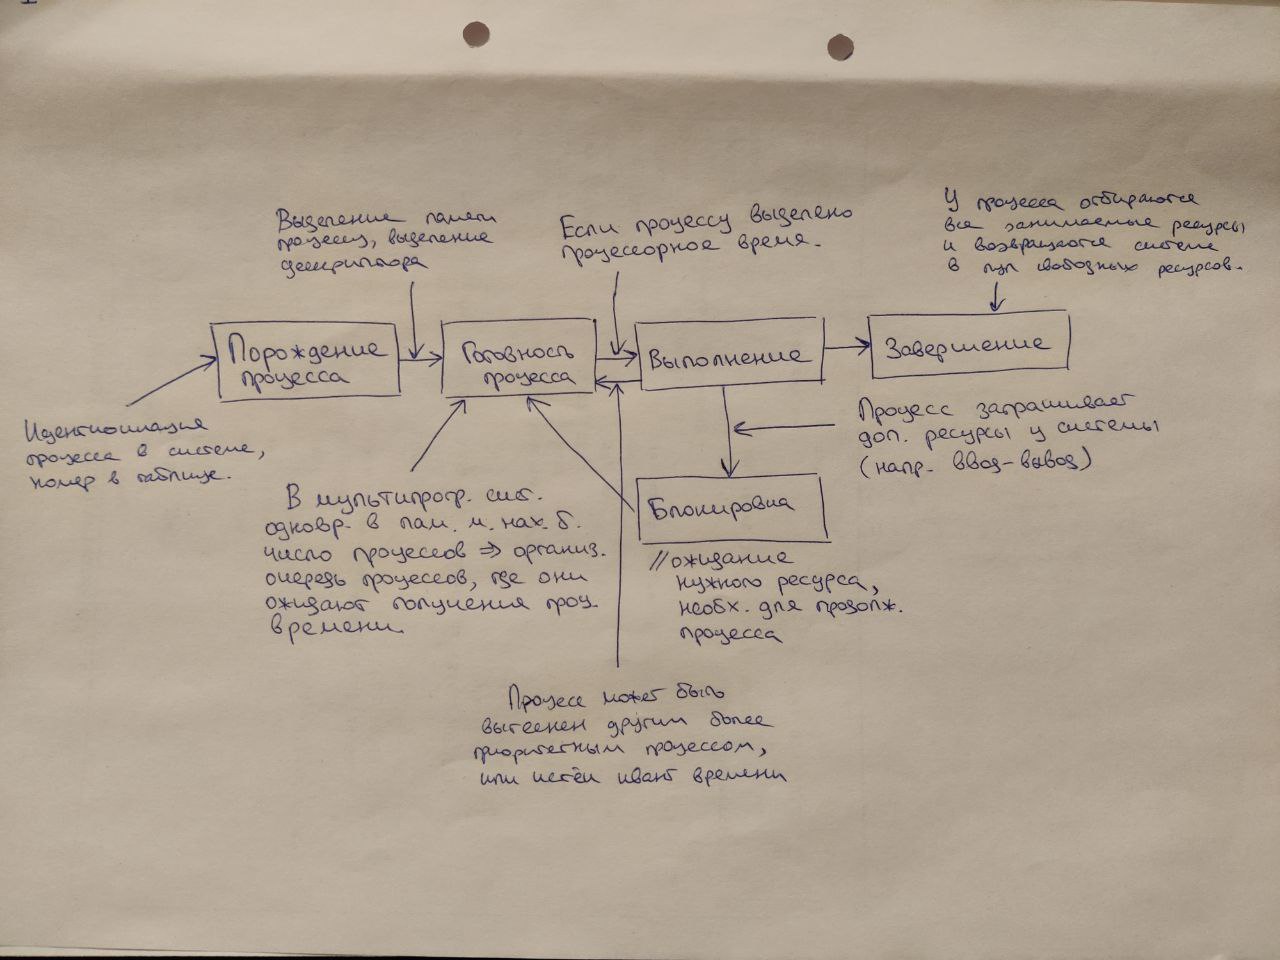 Выделение памяти
процессу, выделение
дескриптора
Если процессу выделено
процессорное время.
У процесса отбираются
все занимаемые ресурсы
и возвращаются системе
в пул свободных ресурсов.
Порождение
процесса
Готовность
процесса
Выполнение
Завершение
Идентификация
процесса в системе,
номер в таблице.
Процесс запрашивает
доп. ресурсы у системы
(напр. ввод-вывод)
В мультипрогр. сист.
одновр. в пам. м. нах. б.
число процессов => организ.
очередь процессов, где они
ожидают получения проц.
времени.
Блокировка
//ожидание
нужного ресурса,
необх. для продолж.
процесса
Процесс может быть
вытеснен другим более
приоритетным процессом,
или истёк квант времени